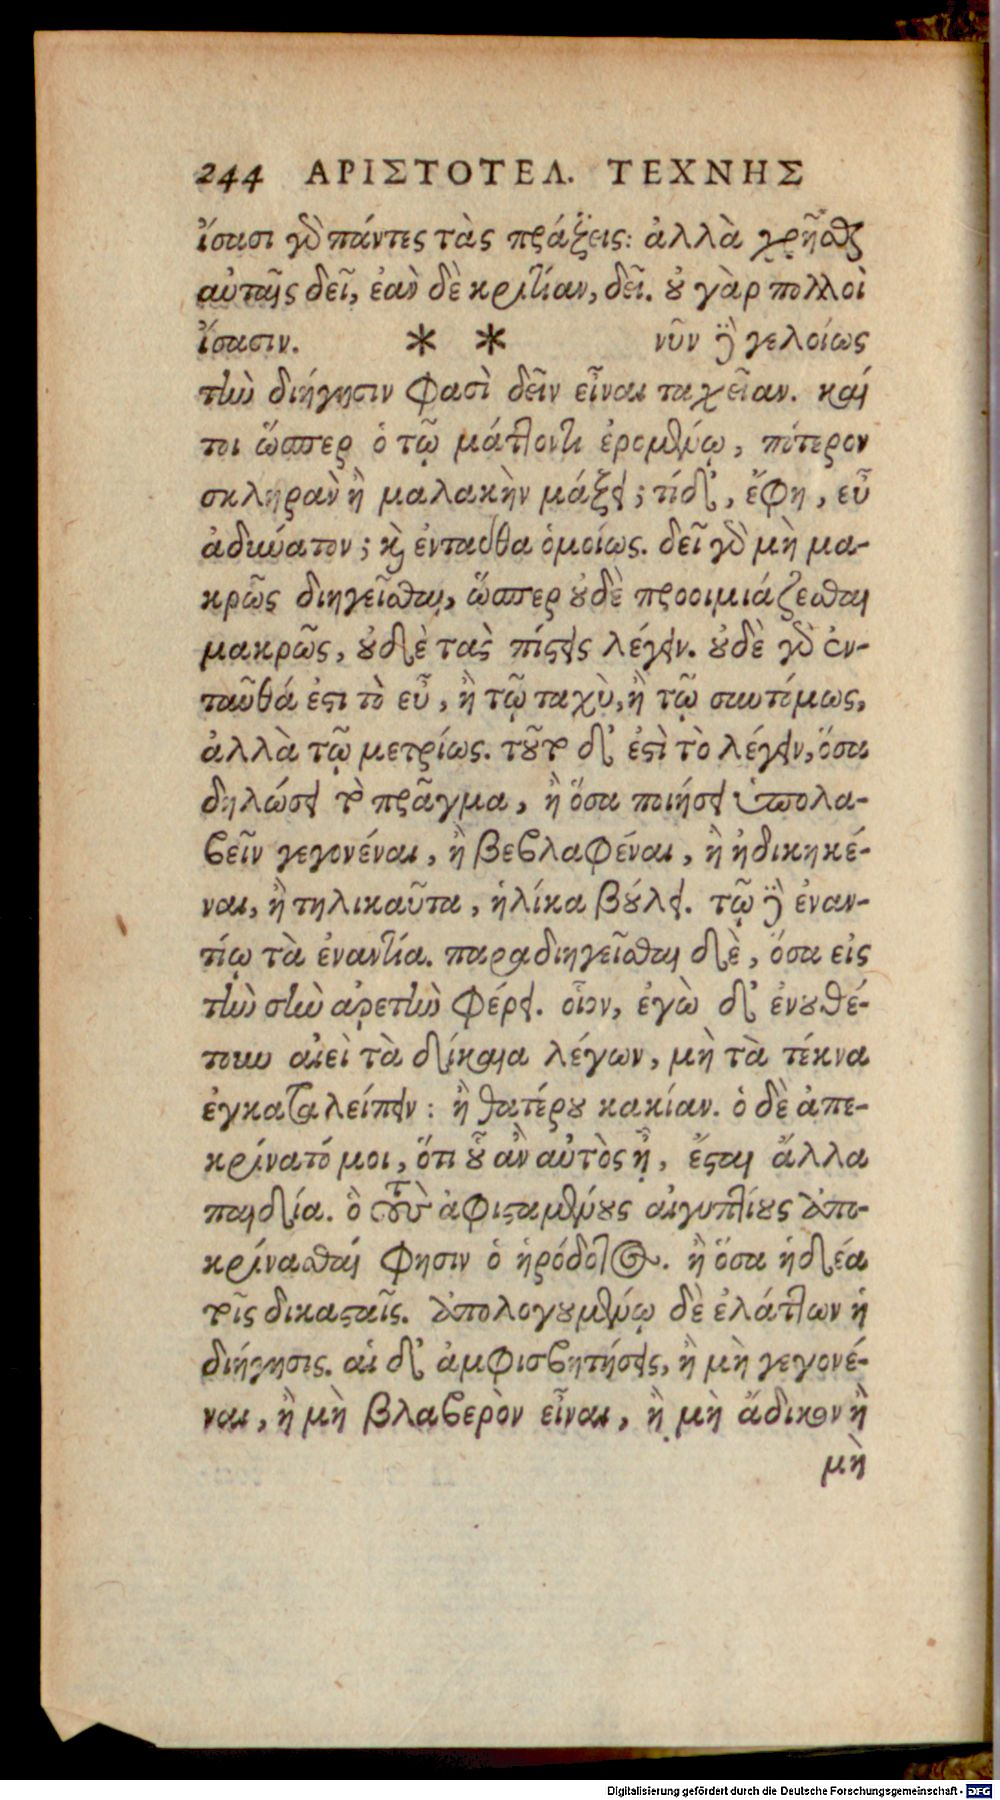 244 ΑΡΙΣΤΟΤΕΛ. ΤΕΧΝΗΣ
ἴσασι γὰρ πάντες τὰς πράξεις: ἀλλὰ χρῆσθαι
αὐταῖς δεῖ, ἐὰν δὲ κριτίαν, δεῖ. οὐ γὰρ πολλοὶ
ἴσασιν. * * νῦν δὲ γελοίως
τὴν διήγησιν φασὶ δεῖν εἶναι ταχεῖαν. καί
τοι ὥσπερ ὁ τῷ μάττοντι ἐρομένῳ, πότερον
σκληρὰν ἢ μαλακὴν μάξει; τίδ', ἔφη, εὖ
ἀδύνατον; καὶ ἐνταῦθα ὁμοίως. δεῖ γὰρ μὴ μα-
κρῶς διηγεῖσθαι, ὥσπερ οὐδὲ προοιμιάζεσθαι
μακρῶς, οὐδὲ τὰς πίστεις λέγειν. οὐδὲ γὰρ ἐν-
ταῦθά ἐστι τὸ εὖ, ἢ τῷ ταχὺ, ἢ τῷ συντόμως,
ἀλλὰ τῷ μετρίως. τοῦτο δ' ἐστὶ τὸ λέγειν, ὅσα
δηλώσει τὸ πρᾶγμα, ἢ ὅσα ποιήσει ὑπολα-
βεῖν γεγονέναι, ἢ βεβλαφέναι, ἢ ἠδικηκέ-
ναι, ἢ τηλικαῦτα, ἡλίκα βούλει. τῷ δὲ ἐναν-
τίῳ τὰ ἐναντία. παραδιηγεῖσθαι δὲ, ὅσα εἰς
τὴν σὴν ἀρετὴν φέρει. οἷον, ἐγὼ δ' ἐνουθέ-
τουν αἰεὶ τὰ δίκαια λέγων, μὴ τὰ τέκνα
ἐγκαταλείπειν: ἢ θατέρου κακίαν. ὁ δὲ ἀπε-
κρίνατό μοι, ὅτι οὗ ἂν αὐτὸς ᾖ, ἔσται ἄλλα
παιδία. ὃ τοὺς ἀφισταμένους αἰγυπτίους ἀπο-
κρίνασθαί φησιν ὁ ἡρόδοτος. ἢ ὅσα ἡδέα
τοῖς δικασταῖς. ἀπολογουμένῳ δὲ ἐλάττων ἡ
διήγησις. αἱ δ' ἀμφισβητήσεις, ἢ μὴ γεγονέ-
ναι, ἢ μὴ βλαβερὸν εἶναι, ἢ μὴ ἄδικον ἢ
μὴ
Digitalisierung gefördert durch die Deutsche Forschungsgemeinschaft - DFG